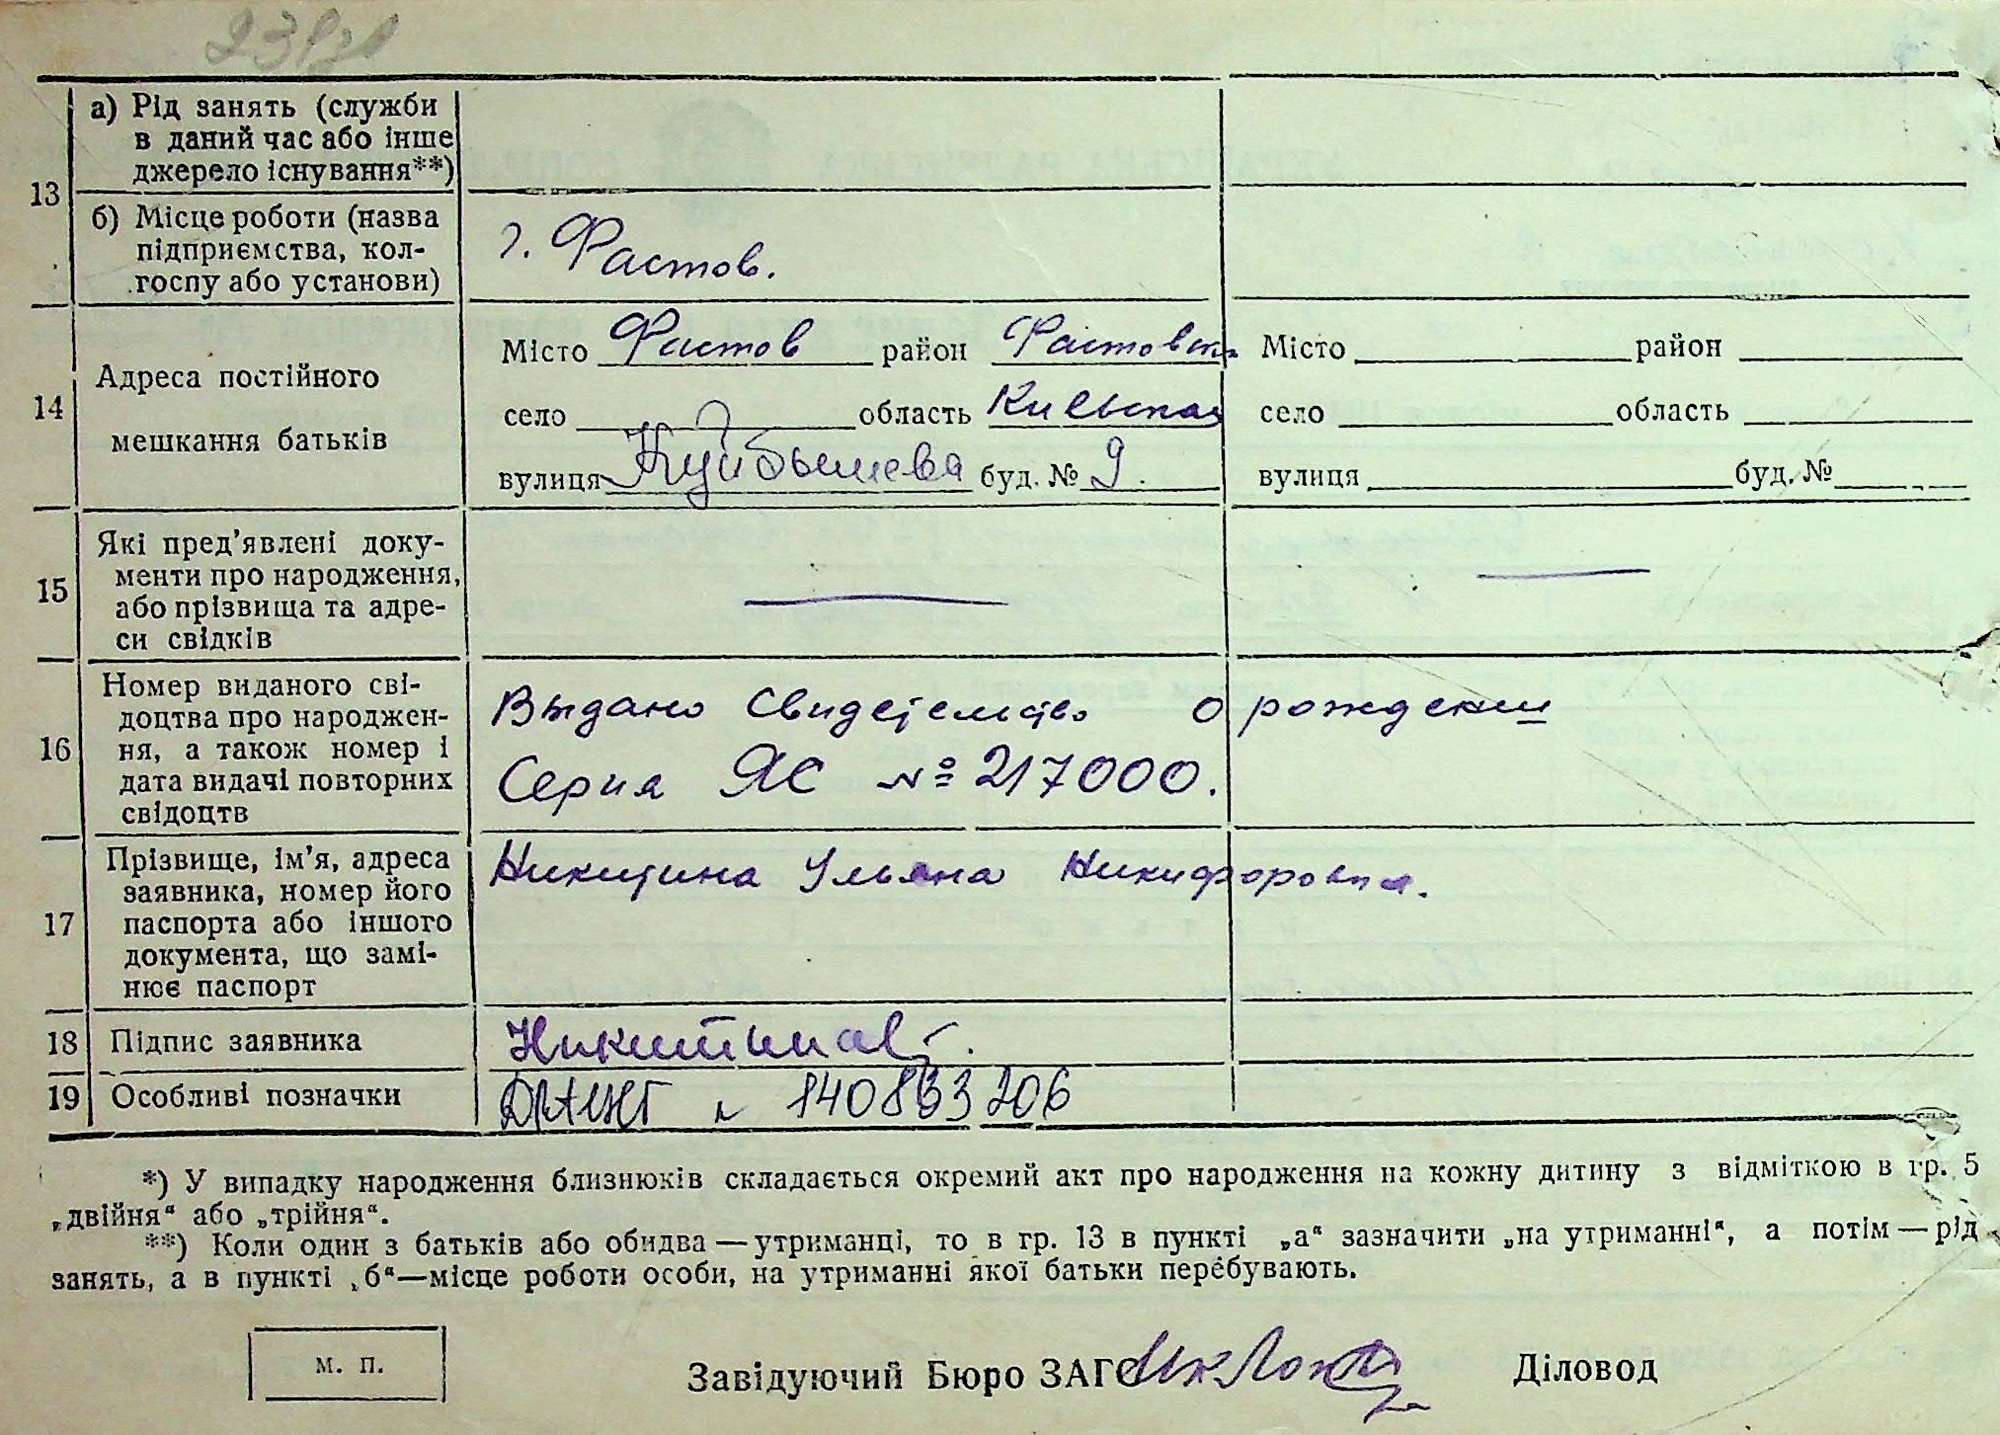 13
а) Рід занять (служби
в даний час або інше
джерело існування**)
б) Місце роботи (назва
підприємства, кол-
госпу або установи)
г. Фастов.
14
Адреса постійного
мешкання батьків
Місто Фастов район Фастовск
село область Киевская
вулиця Куйбышева буд. № 9.
Місто район
село область
вулиця буд. №
15
Які пред'явлені доку-
менти про народження,
або прізвища та адре-
си свідків
16
Номер виданого сві-
доцтва про народжен-
ня, а також номер і
дата видачі повторних
свідоцтв
Выдано Свидетельство о рождении
Серия ЯС № 217000.
17
Прізвище, ім'я, адреса
заявника, номер його
паспорта або іншого
документа, що замі-
нює паспорт
Никитина Ульяна Никифоровна.
18
Підпис заявника
Никитина
19
Особливі позначки
№ 140833206
*) У випадку народження близнюків складається окремий акт про народження на кожну дитину з відміткою в гр. 5
„двійня“ або „трійня“.
**) Коли один з батьків або обидва — утриманці, то в гр. 13 в пункті „а“ зазначити „на утриманні“, а потім — рід
занять, а в пункті „б“—місце роботи особи, на утриманні якої батьки перебувають.
м. п.
Завідуючий Бюро ЗАГС
Діловод